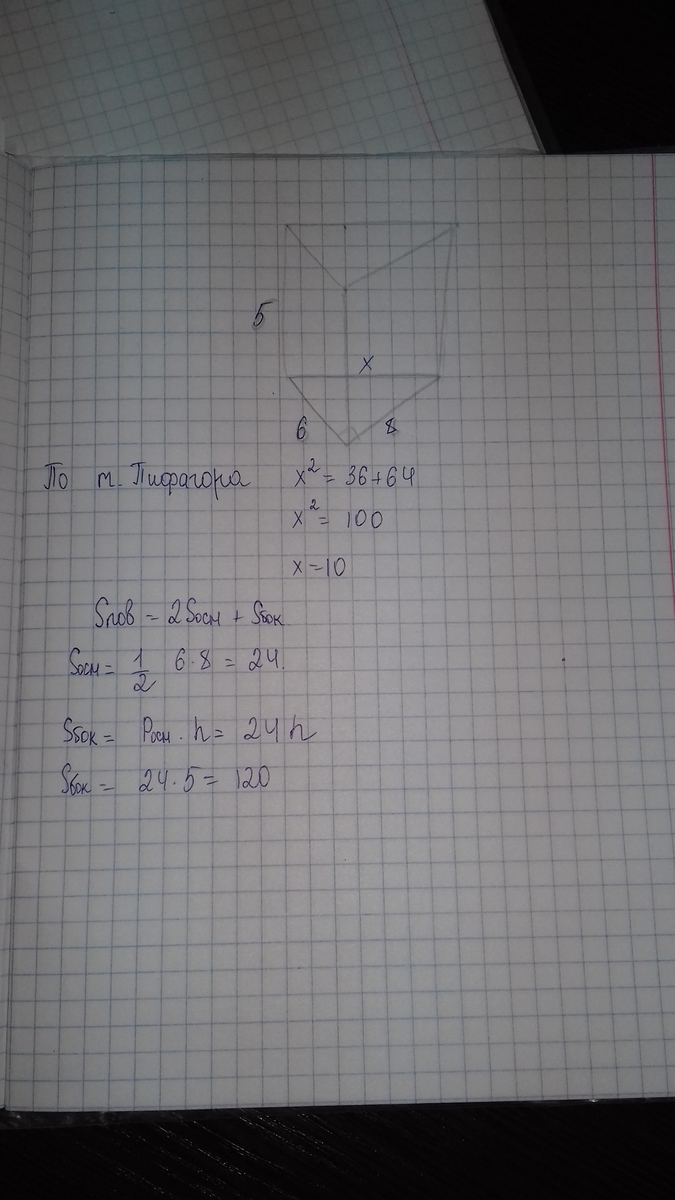 5
x
6 8
По т. Пифагора x² = 36+64
x² = 100
x = 10
Sпов = 2Sосн + Sбок
Sосн = 1/2 6·8 = 24.
Sбок = Pосн · h = 24 h
Sбок = 24·5 = 120